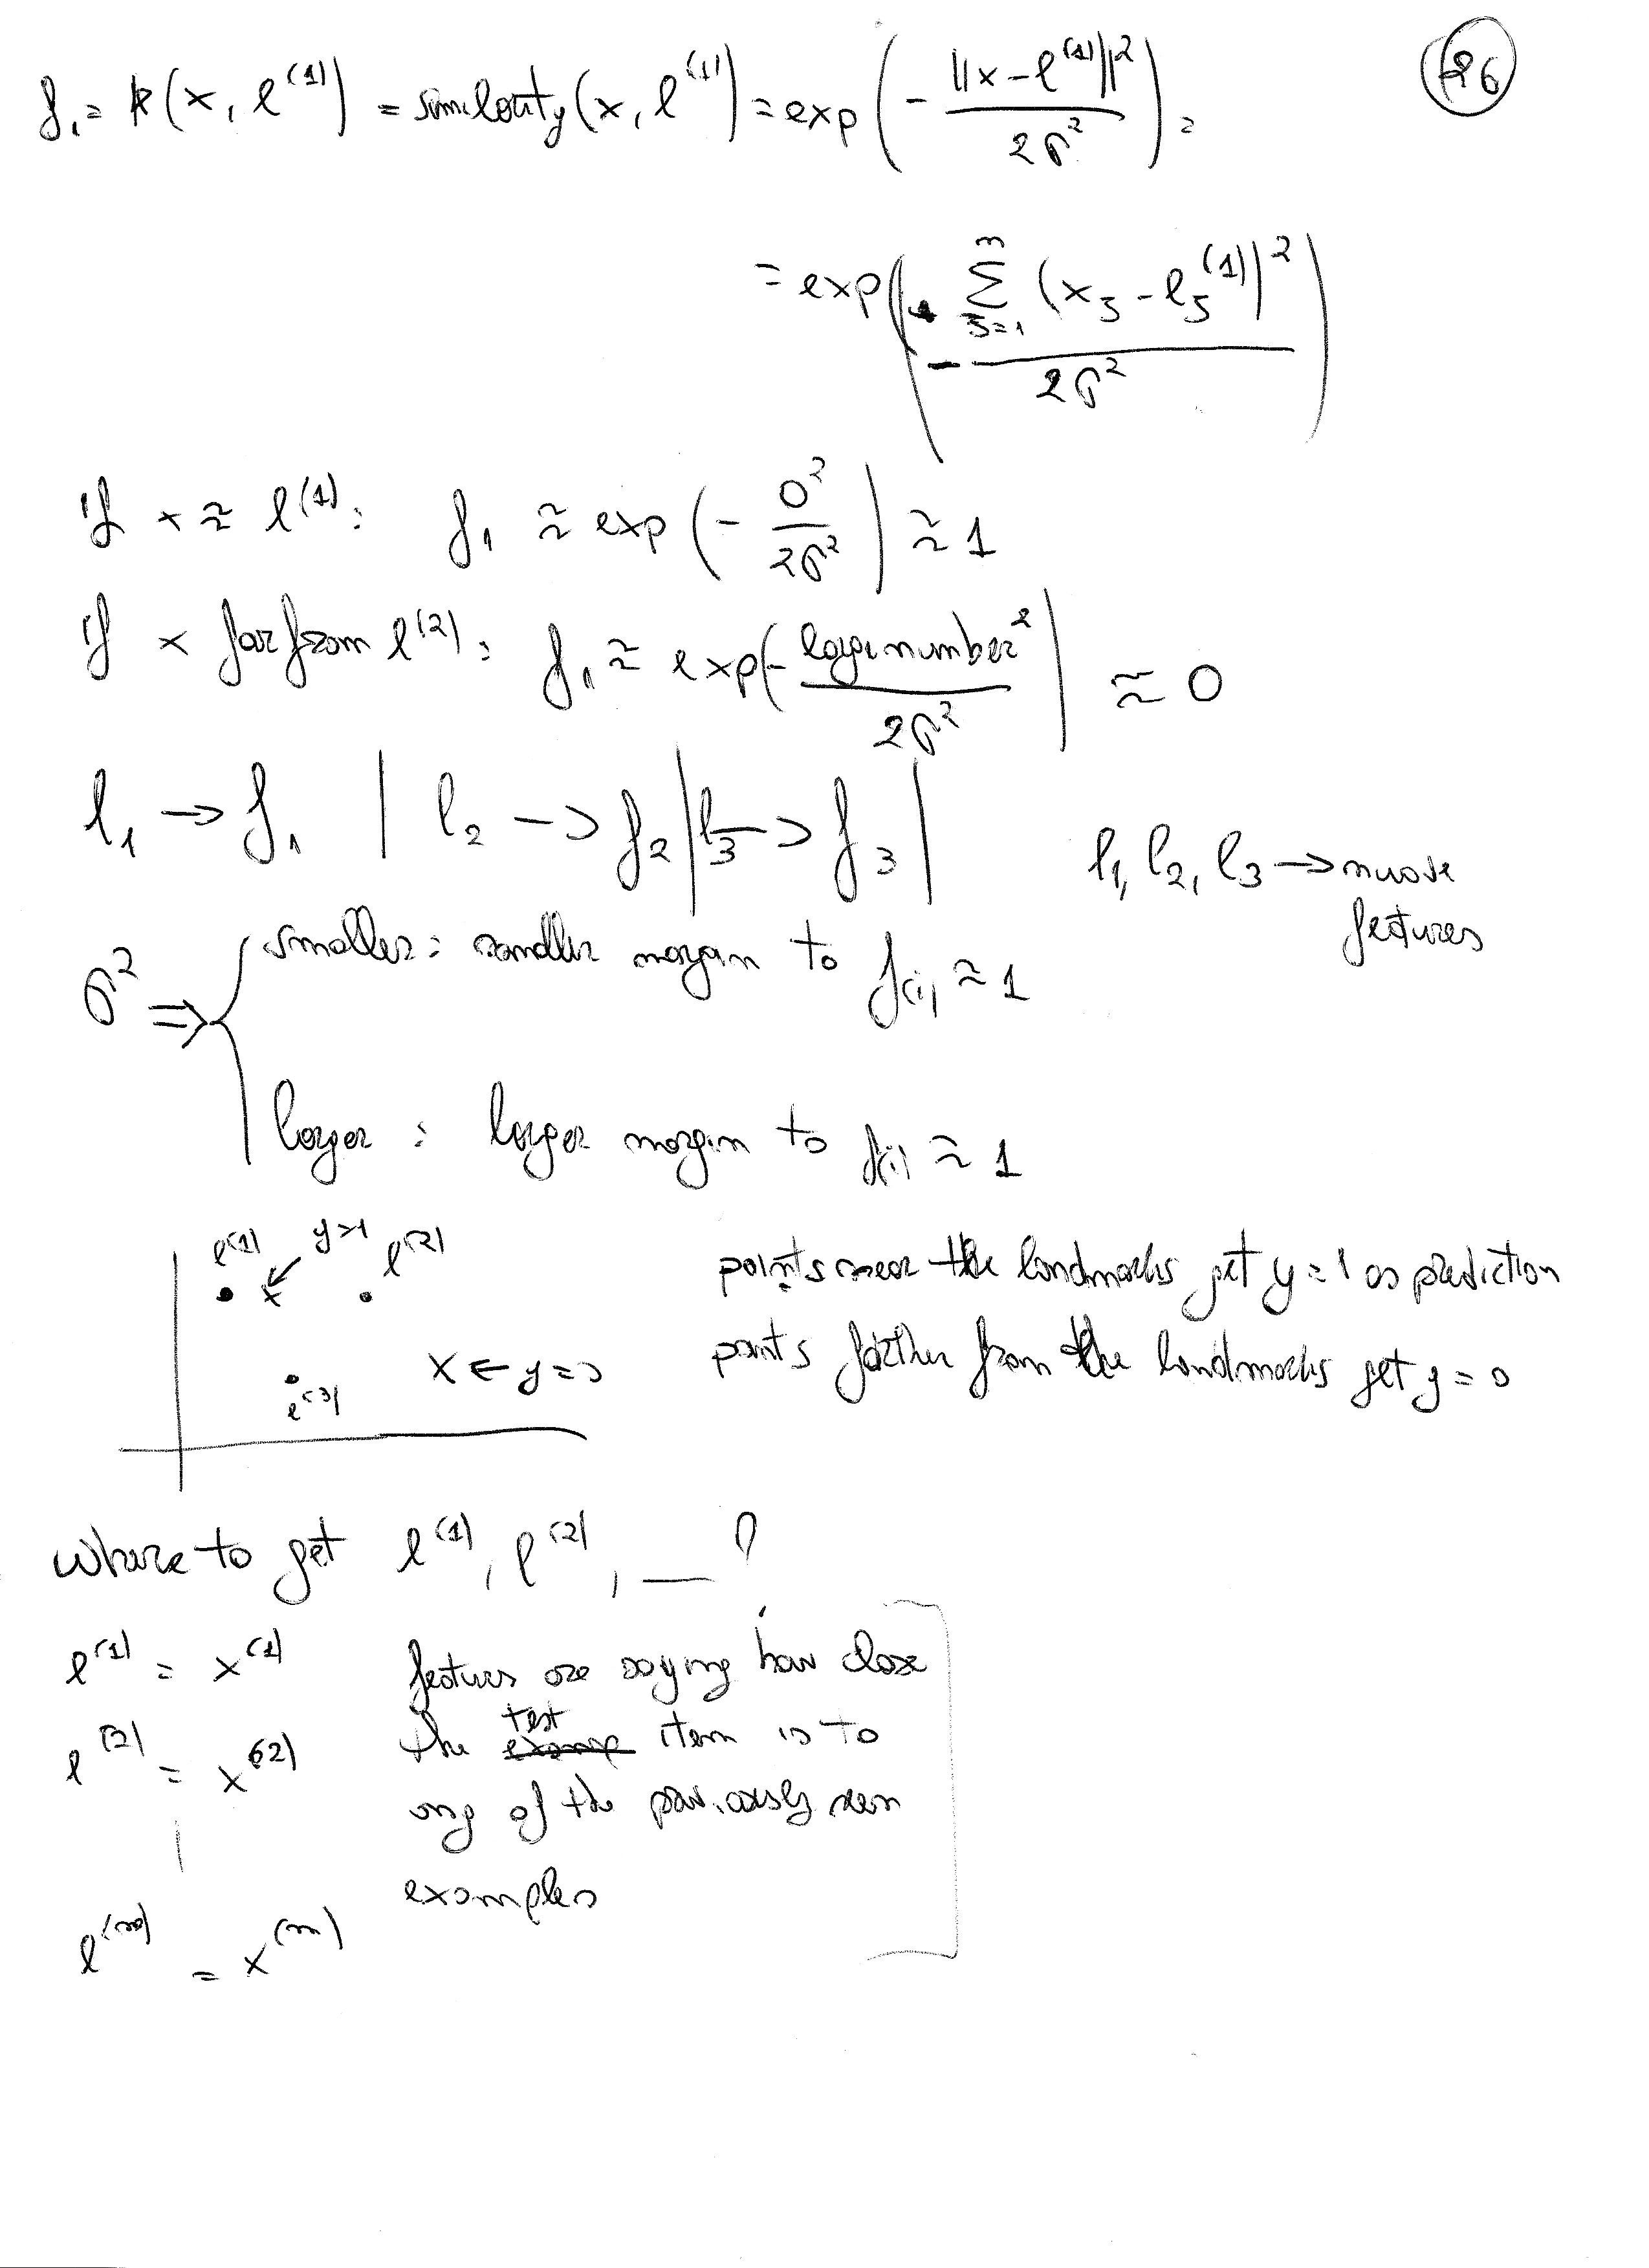 26
f₁ = k(x, l⁽¹⁾) = similarity(x, l⁽¹⁾) = exp(- ||x - l⁽¹⁾||² / 2σ²) =
= exp(- Σⱼ₌₁ⁿ (xⱼ - lⱼ⁽¹⁾)² / 2σ²)
if x ≈ l⁽¹⁾: f₁ ≈ exp(- 0² / 2σ²) ≈ 1
if x far from l⁽²⁾: f₁ ≈ exp(- large number² / 2σ²) ≈ 0
l₁ -> f₁ | l₂ -> f₂ | l₃ -> f₃ |
l₁, l₂, l₃ -> nuove
features
σ² => smaller: smaller margin to f(i) ≈ 1
larger: larger margin to f(i) ≈ 1
l⁽¹⁾ y=1 l⁽²⁾
x
x ← y=0
l⁽³⁾
points near the landmarks get y=1 as prediction
points farther from the landmarks get y=0
where to get l⁽¹⁾, l⁽²⁾, ... ?
l⁽¹⁾ = x⁽¹⁾
l⁽²⁾ = x⁽²⁾
l⁽ᵐ⁾ = x⁽ᵐ⁾
features are saying how close
the test item is to
ong of the previously seen
examples